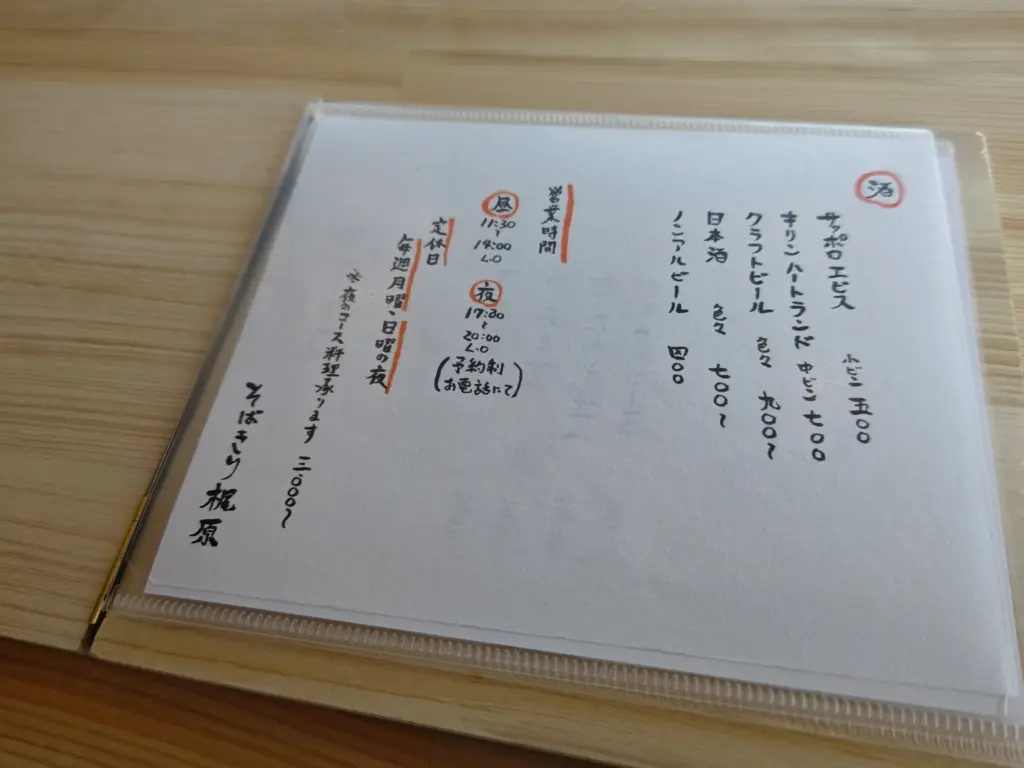 酒
サッポロ エビス 小ビン 五00
キリンハートランド 中ビン 七00
クラフトビール 色々 九00〜
日本酒 色々 七00〜
ノンアルビール 四00
営業時間
昼
11:30
〜
14:00
L.O
夜
17:30
〜
20:00
L.O
(予約制
お電話にて)
定休日
毎週月曜、日曜の夜
※夜のコース料理承ります 三.000〜
そばきり 梶原